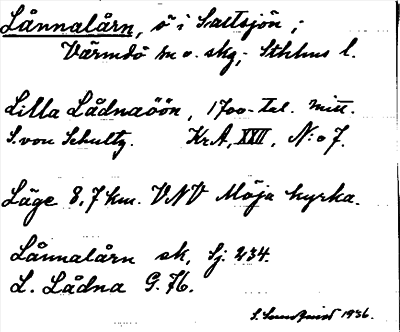 Lånnalårn, ö i Saltsjön;
Värmdö sn o. skg; Sthlms l.
Lilla Lådnaöön, 1700-tal. mitt.
S. von Schultz. Kr A, XXII, N:o 7.
Läge 8,7 km. VNV Möja kyrka.
Lånnalårn sk, Sj. 234.
L. Lådna G. 76.
S. Sundqvist 1936.